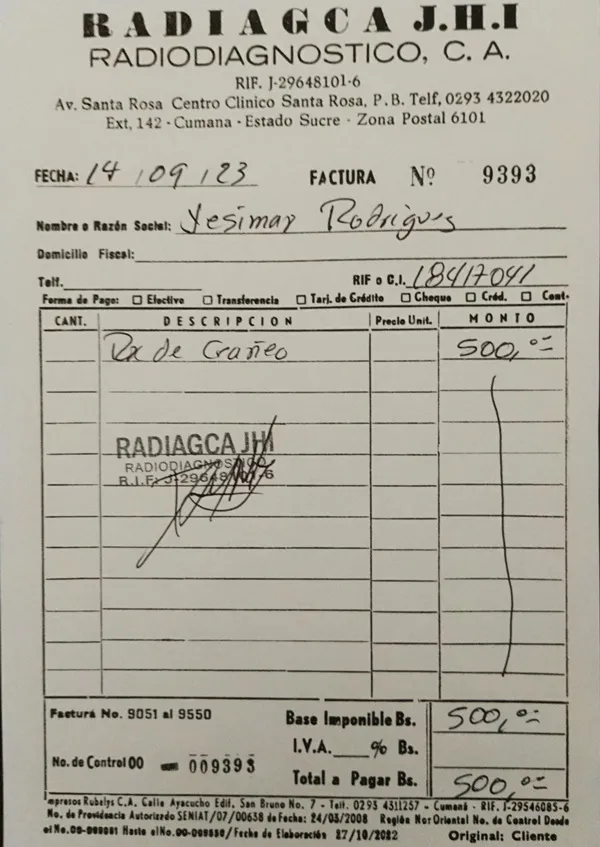 RADIAGCA J.H.I
RADIODIAGNOSTICO, C. A.
RIF. J-29648101-6
Av. Santa Rosa Centro Clinico Santa Rosa, P.B. Telf, 0293 4322020
Ext, 142 - Cumana - Estado Sucre - Zona Postal 6101
FECHA: 14 / 09 / 23 FACTURA Nº 9393
Nombre o Razón Social: Yesimar Rodrigues
Domicilio Fiscal:
Telf. RIF o C.I. 18417041
Forma de Pago: Efectivo Transferencia Tarj. de Crédito Cheque Créd. Cont.
CANT. DESCRIPCION Precio Unit. MONTO
Rx de Craneo 500,oo
RADIAGCA JHI
RADIODIAGNOSTICO
R.I.F: J-29648101-6
Factura No. 9051 al 9550 Base Imponible Bs. 500,oo
I.V.A. % Bs.
No. de Control 00 - 009393
Total a Pagar Bs. 500,oo
Impresos Rubelys C.A. Calle Ayacucho Edif. San Bruno No. 7 - Telf. 0293 4311257 - Cumaná - RIF. J-29546085-6
No. de Providencia Autorizado SENIAT/07/00638 de Fecha: 24/03/2008 Región Nor Oriental No. de Control Desde
el No. Hasta el No. /Fecha de Elaboración 27/10/2022 Original: Cliente